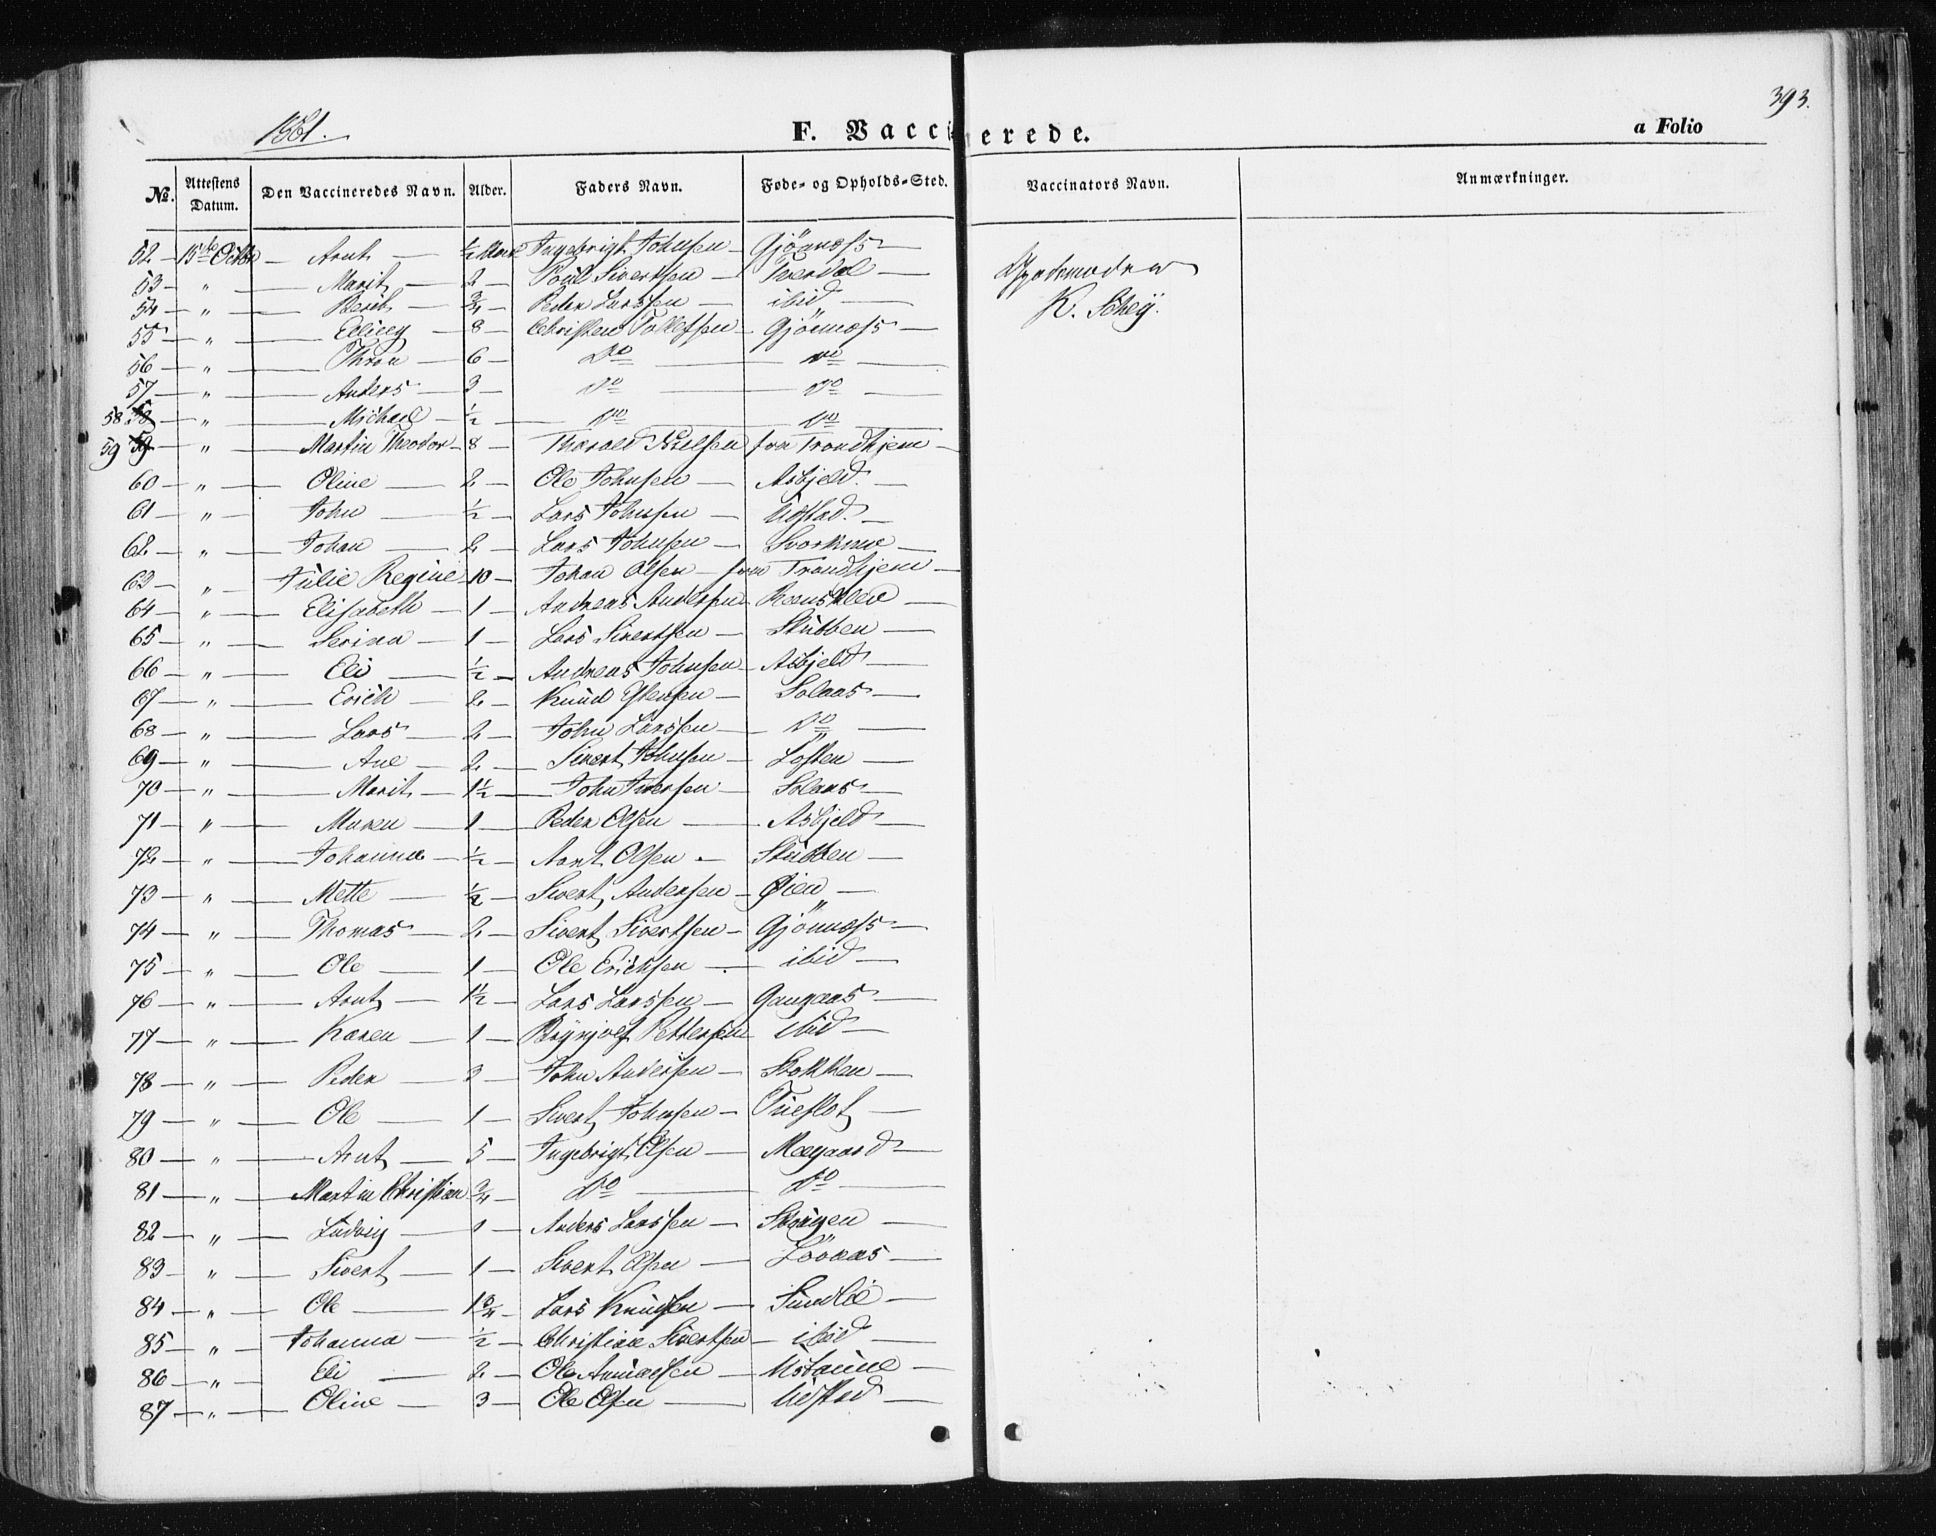 1861.
F. Vaccinerede.
a Folio
393.
No. Attestens Datum. Den Vaccineredes Navn. Alder. Faders Navn. Føde- og Opholds-Sted. Vaccinators Navn. Anmærkninger.
52 — 15de Octbr — Arnt — 1/2 Ingebrigt Johnsen — Gjönnæss —
53 — „ — Marit — 2 — Poul Sivertsen —
54 — „ — Berit — 3/4 — Peder Larssen — ibid —
K. Schey.
55 — „ — 8 — Christen — Gjönnæss —
56 — „ — Thron — 6 — Do — Do —
57 — „ — Anders — 3 — Do — Do —
58 58 — „ — Michael — 1/2 — Do — Do —
59 59 — „ — Martin Theodor — 8 — Nielsen fra Trondhjem —
60 — „ — Oline — 2 — Ole Johnsen — Asbjeld. —
61 — „ — John — 1/2 — Lars Johnsen — Udstad. —
62 — „ — Johan — 2 — Lars Johnsen —
63 — „ — Julie Regine — 10 — Johan Olsen — fra Trondhjem —
64 — „ — Elisabeth — 1 — Andreas Andersen —
65 — „ — Serina — 1 — Lars Sivertsen — Stubben —
66 — „ — Eli — 1/2 — Andreas Johnsen — Asbjeld —
67 — „ — Erich — 2 — Knud Estensen — Solaas —
68 — „ — Lars — 2 — John Larssen — Do —
69 — „ — Ane — 2 — Sivert Johnsen — Loften —
70 — „ — Marit — 1 1/2 — John Iversen — Solaas —
71 — „ — Maren — 1 — Peder Olsen — Asbjeld —
72 — „ — Johanna — 1/2 — Arnt Olsen — Stubben —
73 — „ — Mette — 1/2 — Sivert Andersen — Øien —
74 — „ — Thomas — 2 — Sivert Sivertsen — Gjönnæss —
75 — „ — Ole — 1 — Ole Erichsen — ibid —
76 — „ — Arnt — 1 1/2 — Lars Larssen — Gangaas —
77 — „ — Karen — 1 — Brynjolf Pettersen ibid —
78 — „ — Peder — 3 — John Andersen — Stokken —
79 — „ — Ole — 1 — Sivert Johnsen —
80 — „ — Arnt — 5 — Ingebrigt Olsen — Moegaard —
81 — „ — Martin Christian 3/4 — Do — Do —
82 — „ — Ludvig — 1 — Anders Larssen —
83 — „ — Sivert — 1 — Sivert Olsen — Lövaas —
84 — „ — Ole — 1 3/4 — Lars Knudsen — Sundlie —
85 — „ — Johanna — 1/2 — Christian Sivertsen — ibid —
86 — „ — Eli — 2 — Ole — Ustanne —
87 — „ — Oline — 3 — Ole Olsen — Udstad —